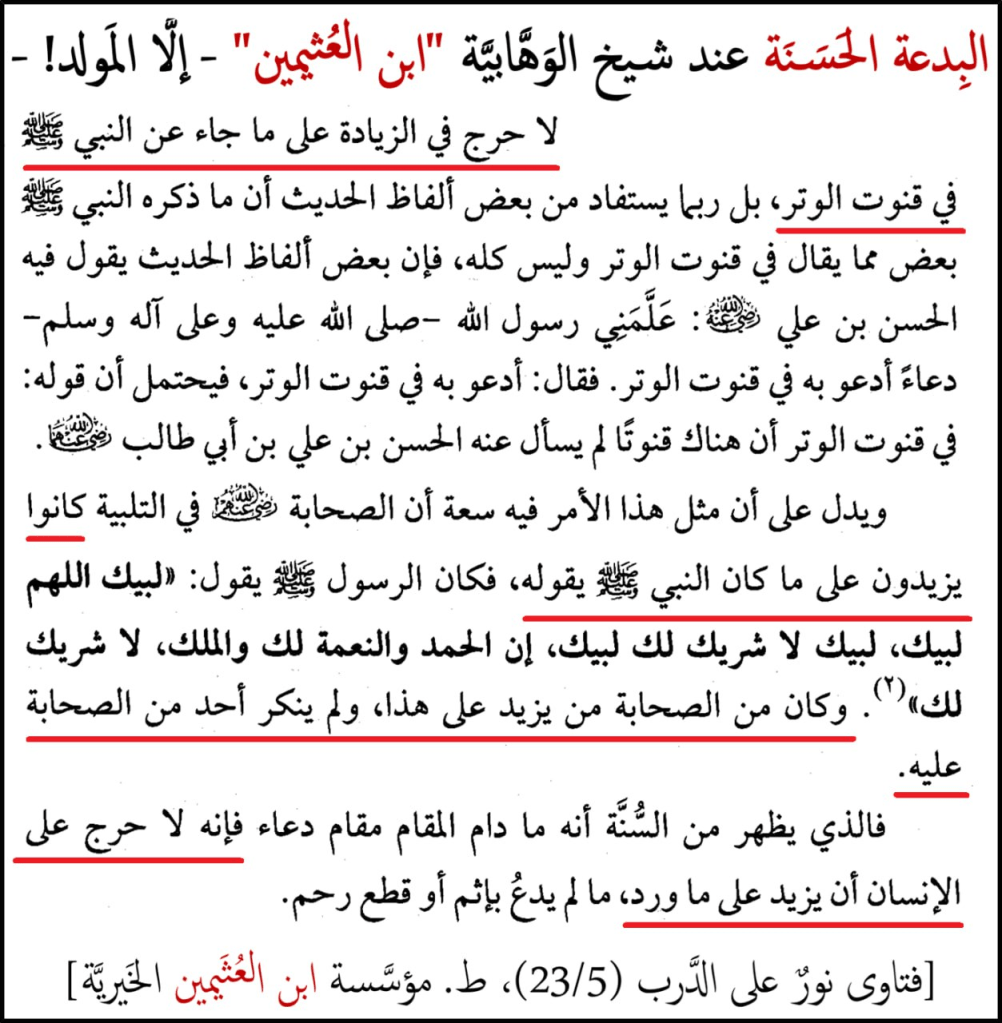 البِدعة الحَسَنَة عند شيخ الوَهَّابيَّة "ابن العُثيمين" - إلَّا المَولد! -
لا حرج في الزيادة على ما جاء عن النبي ﷺ
في قنوت الوتر، بل ربما يستفاد من بعض ألفاظ الحديث أن ما ذكره النبي ﷺ
بعض مما يقال في قنوت الوتر وليس كله، فإن بعض ألفاظ الحديث يقول فيه
الحسن بن علي رضي الله عنه: عَلَّمَنِي رسول الله –صلى الله عليه وعلى آله وسلم–
دعاءً أدعو به في قنوت الوتر. فقال: أدعو به في قنوت الوتر، فيحتمل أن قوله:
في قنوت الوتر أن هناك قنوتًا لم يسأل عنه الحسن بن علي بن أبي طالب رضي الله عنهما.
ويدل على أن مثل هذا الأمر فيه سعة أن الصحابة رضي الله عنهم في التلبية كانوا
يزيدون على ما كان النبي ﷺ يقوله، فكان الرسول ﷺ يقول: «لبيك اللهم
لبيك، لبيك لا شريك لك لبيك، إن الحمد والنعمة لك والملك، لا شريك
لك»(٢). وكان من الصحابة من يزيد على هذا، ولم ينكر أحد من الصحابة
عليه.
فالذي يظهر من السُّنَّة أنه ما دام المقام مقام دعاء فإنه لا حرج على
الإنسان أن يزيد على ما ورد، ما لم يدعُ بإثم أو قطع رحم.
[فتاوى نورٌ على الدَّرب (23/5)، ط. مؤسَّسة ابن العُثَيمين الخَيريَّة]